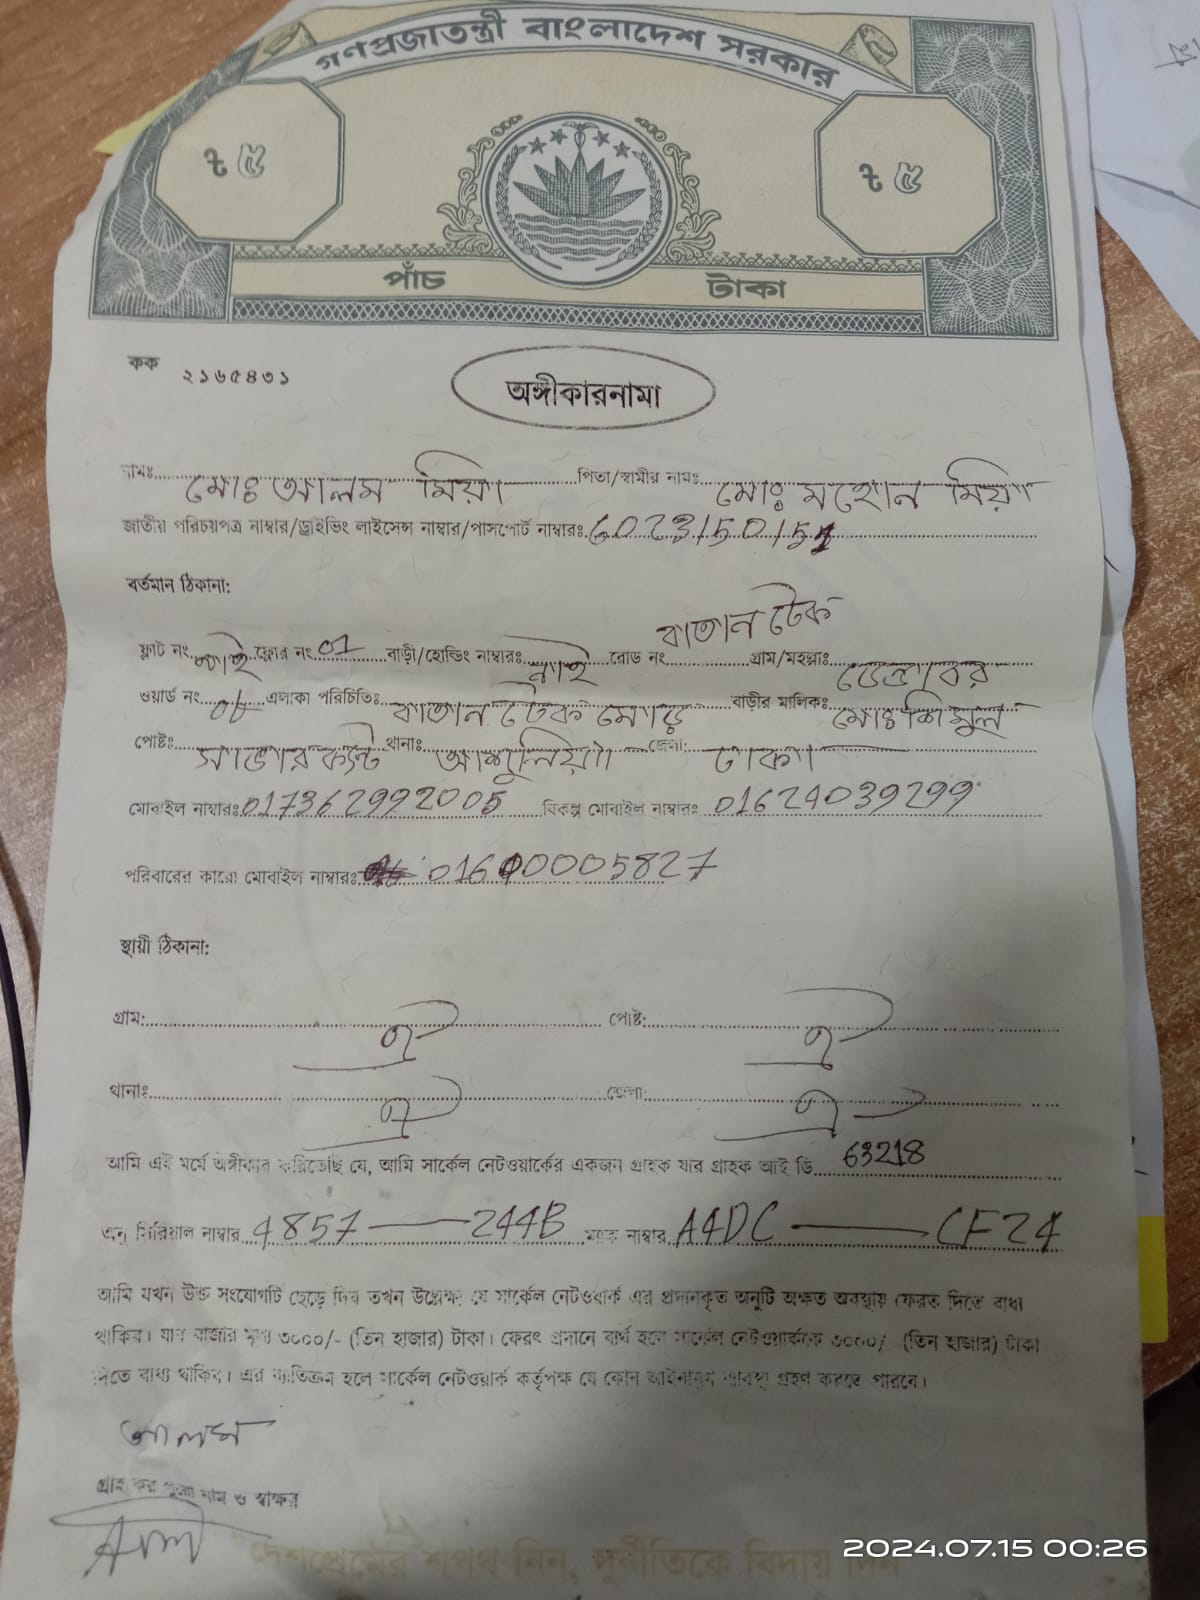 গণপ্রজাতন্ত্রী বাংলাদেশ সরকার
৳ ৫ ৳ ৫
পাঁচ টাকা
কক ২১৬৫৪৩১
অঙ্গীকারনামা
নামঃ মোঃ আলম মিয়া পিতা/স্বামীর নামঃ মোঃ মহোন মিয়া
জাতীয় পরিচয়পত্র নাম্বার/ড্রাইভিং লাইসেন্স নাম্বার/পাসপোর্ট নাম্বারঃ
বর্তমান ঠিকানা:
বাতান টেক
ফ্লাট নং নাই ফ্লোর নং 01 বাড়ী/হোল্ডিং নাম্বারঃ নাই রোড নং গ্রাম/মহল্লাঃ ডেন্ডাবর
ওয়ার্ড নং 06 এলাকা পরিচিতিঃ বাতান টেক মোড় বাড়ীর মালিকঃ মোঃ শিমুল
পোষ্টঃ সাভার কেন্ট থানাঃ আশুলিয়া জেলা: ঢাকা
মোবাইল নাম্বারঃ 017362992005 বিকল্প মোবাইল নাম্বারঃ 01624039299
পরিবারের কারো মোবাইল নাম্বারঃ 01600005827
স্থায়ী ঠিকানা:
গ্রাম: ঐ পোষ্ট: ঐ
থানাঃ ঐ জেলা: ঐ
আমি এই মর্মে অঙ্গীকার করিতেছি যে, আমি সার্কেল নেটওয়ার্কের একজন গ্রাহক যার গ্রাহক আই ডি 63218
অনু সিরিয়াল নাম্বার 4857 — 244B ম্যাক নাম্বার A4DC — CF24
আমি যখন উক্ত সংযোগটি ছেড়ে দিব তখন উল্লেক্ষ্য যে সার্কেল নেটওয়ার্ক এর প্রদানকৃত অনুটি অক্ষত অবস্থায় ফেরত দিতে বাধ্য
থাকিব। যার বাজার মূল্য ৩০০০/- (তিন হাজার) টাকা। ফেরৎ প্রদানে ব্যর্থ হলে সার্কেল নেটওয়ার্ককে ৩০০০/ (তিন হাজার) টাকা
দিতে বাধ্য থাকিব। এর ব্যতিক্রম হলে সার্কেল নেটওয়ার্ক কর্তৃপক্ষ যে কোন আইনানুগ ব্যবস্থা গ্রহণ করতে পারবে।
আলম
গ্রাহকের পুরো নাম ও স্বাক্ষর
"দেশপ্রেমের শপথ নিন, দুর্নীতিকে বিদায় দিন"
2024.07.15 00:26